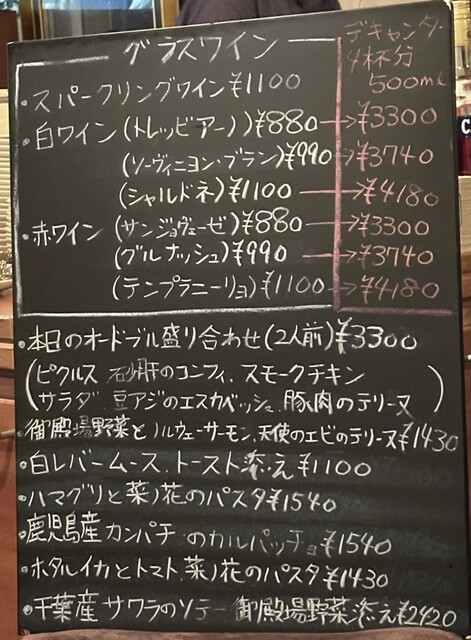 グラスワイン
デキャンタ
4杯分
500ml
・スパークリングワイン ¥1100
・白ワイン (トレッビアーノ) ¥880 → ¥3300
(ソーヴィニヨン・ブラン) ¥990 → ¥3740
(シャルドネ) ¥1100 → ¥4180
・赤ワイン (サンジョヴェーゼ) ¥880 → ¥3300
(グルナッシュ) ¥990 → ¥3740
(テンプラニーリョ) ¥1100 → ¥4180
・本日のオードブル盛り合わせ(2人前) ¥3300
(ピクルス 砂肝のコンフィ、スモークチキン
サラダ、豆アジのエスカベッシュ、豚肉のテリーヌ)
・御殿場野菜とノルウェーサーモン、天使のエビのテリーヌ ¥1430
・白レバームース、トースト添え ¥1100
・ハマグリと菜ノ花のパスタ ¥1540
・鹿児島産カンパチのカルパッチョ ¥1540
・ホタルイカとトマト、菜ノ花のパスタ ¥1430
・千葉産サワラのソテー 御殿場野菜添え ¥2420